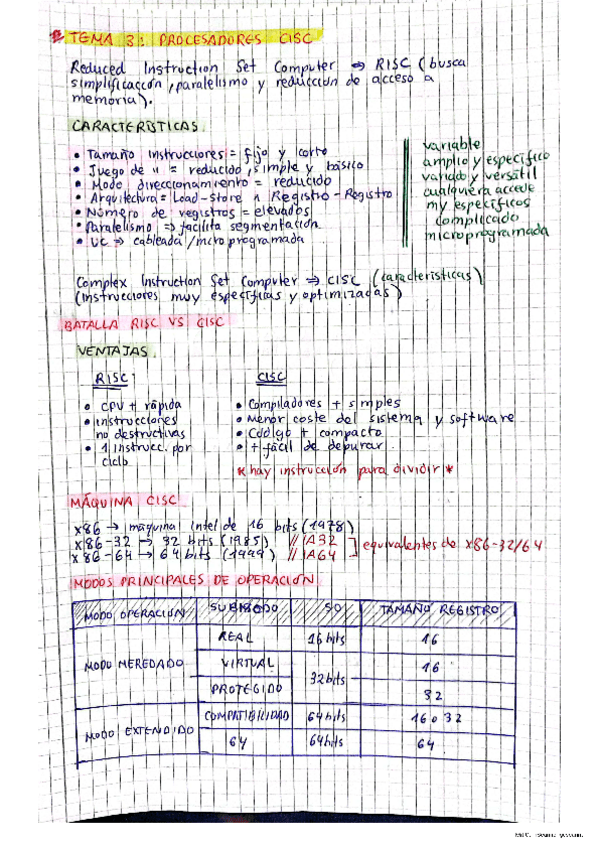 TEMA 3: PROCESADORES CISC
Reduced Instruction Set Computer => RISC (busca
simplificación, paralelismo y reducción de acceso a
memoria).
CARACTERÍSTICAS.
• Tamaño instrucciones = fijo y corto
• Juego de " = reducido, simple y básico
• Modo direccionamiento = reducido
• Arquitectura = Load-Store ∧ Registro-Registro
• Número de registros = elevados
• Paralelismo => facilita segmentación
• UC => cableada/microprogramada
variable
amplio y específico
variado y versátil
cualquiera accede
my específicos
complicado
microprogramada
Complex Instruction Set Computer => CISC (características)
(instrucciones muy específicas y optimizadas)
BATALLA RISC VS CISC
VENTAJAS.
RISC:
• CPU + rápida
• instrucciones
no destructivas
• 1 instrucc. por
ciclo
CISC
• Compiladores + simples
• Menor coste del sistema y software
• Código + compacto
• + fácil de depurar.
* hay instrucción para dividir *
MÁQUINA CISC
x86 → máquina intel de 16 bits (1978)
x86-32 → 32 bits (1985) // IA32
x86-64 → 64 bits (1999) // IA64
] equivalentes de x86-32/64
MODOS PRINCIPALES DE OPERACIÓN
MODO OPERACIÓN SUBMODO SO TAMAÑO REGISTRO
MODO HEREDADO REAL 16 bits 16
VIRTUAL 32 bits 16
PROTEGIDO 32
MODO EXTENDIDO COMPATIBILIDAD 64 bits 16 o 32
64 64 bits 64